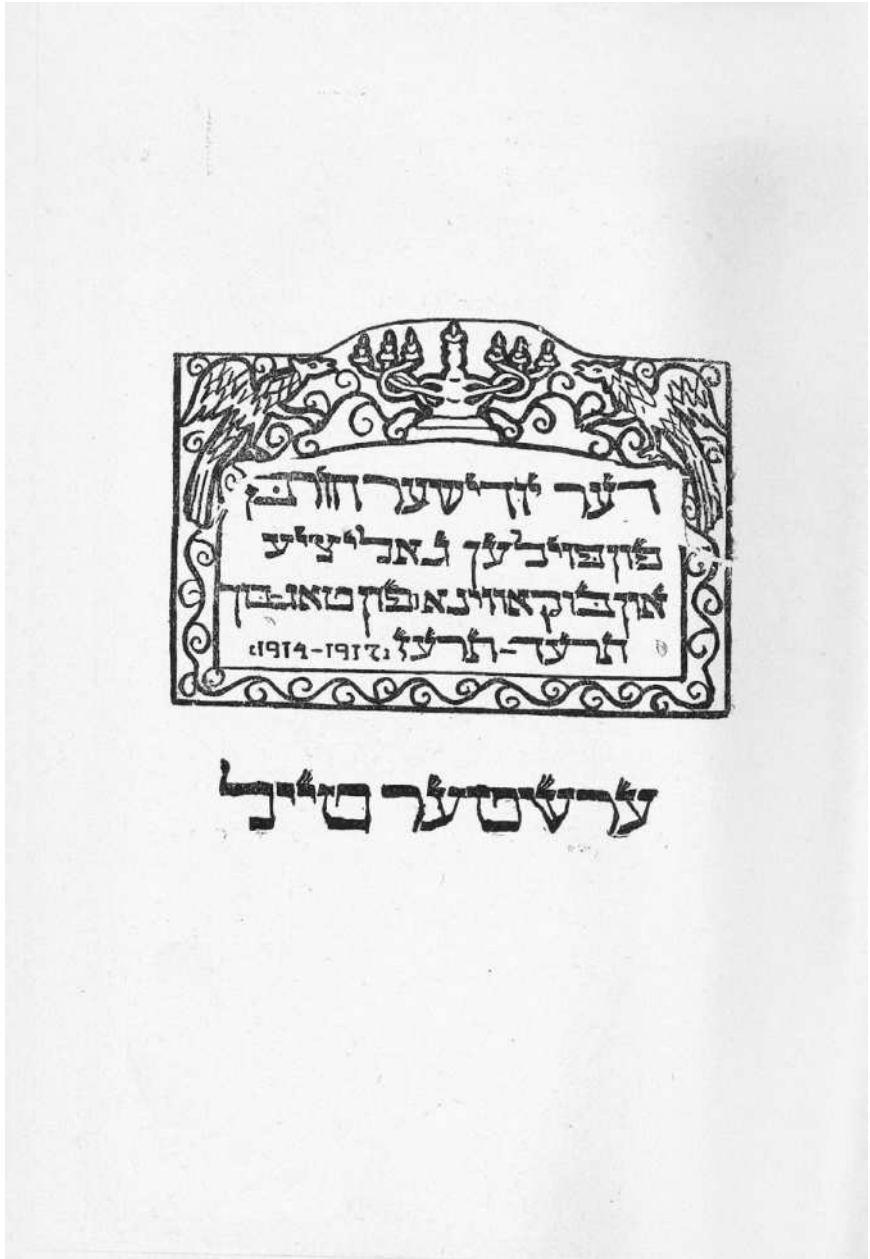 דער יודישער חורבן
פון פוילען גאליציע
און בוקאווינא (פון טאג-בוך
תרעד-תרעז (1914-1917)
ערשטער טייל